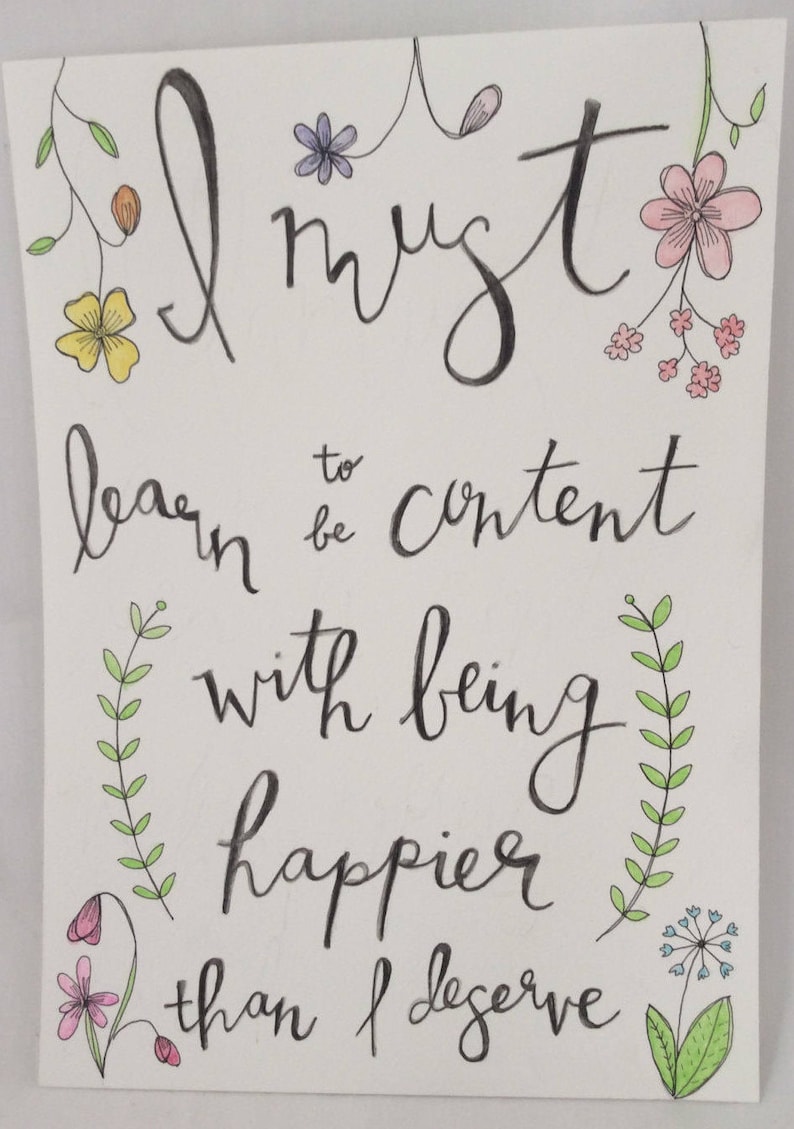 I must
learn to be content
with being
happier
than I deserve